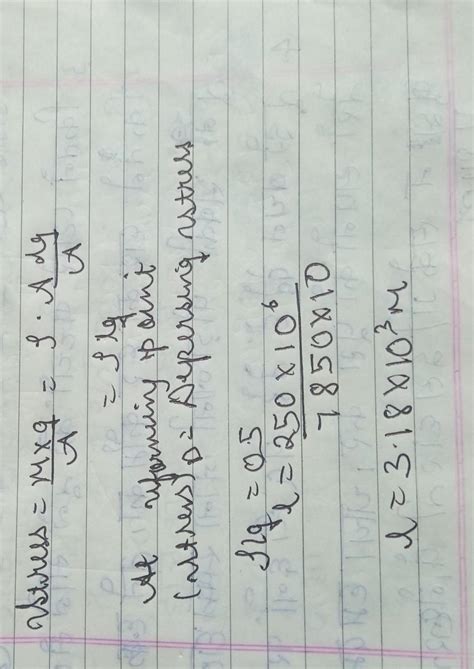 Stress = m×g/A = ρ·Alg/A
= ρlg
At yforming point
(stress)₀ = Depersing stress
ρlg = 05
l = 250×10⁶/7850×10
l = 3.18×10³m